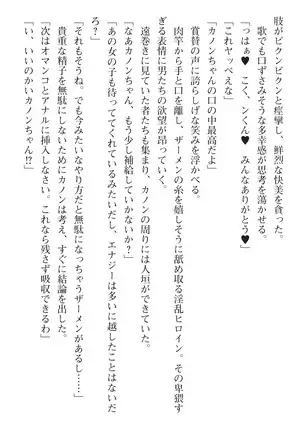 肢がビクンビクンと痙攣し、鮮烈な快美を貪った。
歌でも口ずさみそうな多幸感が思考を蕩かせる。
「っはぁ♥　こく、ンくん♥　みんなありがとう♥」
「これヤっべえな」
「カノンちゃんの口の中最高だよ」
賞賛の声に誇らしげな笑みを浮かべる。
肉竿から手と口を離し、ザーメンの糸を嬉しそうに舐め取る淫乱ヒロイン。その卑猥す
ぎる表情に男たちの欲望が昂っていく。
遠巻きに見ていた者たちも集まり、カノンの周りには人垣ができていた。
「なあカノンちゃん、もう少し補給していかないか?」
「あの女の子も待っててくれているみたいだし、エナジーは多いに越したことはないだ
ろ?」
「それもそうね。でも今みたいなやり方だと無駄になっちゃうザーメンがあるし……」
貴重な精子を無駄にしないためにカノンは考え、すぐに結論を出した。
「次はオマンコとアナルに挿入しなさい。これなら残さず吸収できるわ」
「い、いいのかいカノンちゃん!?」